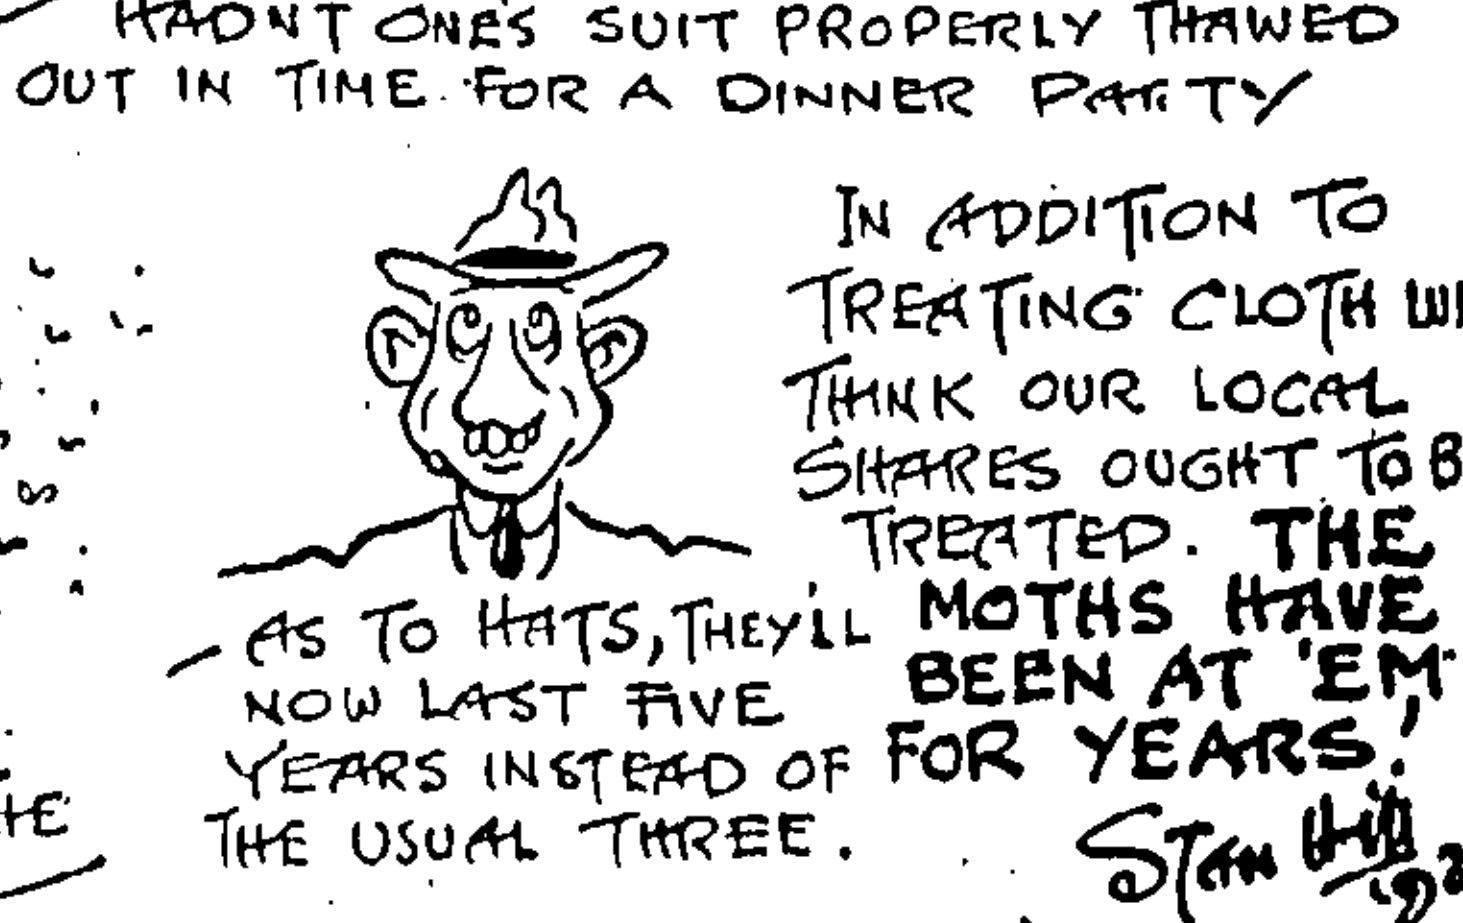 HADN'T ONE'S SUIT PROPERLY THAWED
OUT IN TIME FOR A DINNER PARTY
IN ADDITION TO
TREATING CLOTH WI
THINK OUR LOCAL
SHARES OUGHT TO B
TREATED. THE
MOTHS HAVE
BEEN AT 'EM
FOR YEARS!
— AS TO HATS, THEY'LL
NOW LAST FIVE
YEARS INSTEAD OF
THE USUAL THREE.
HE
STAN HILL